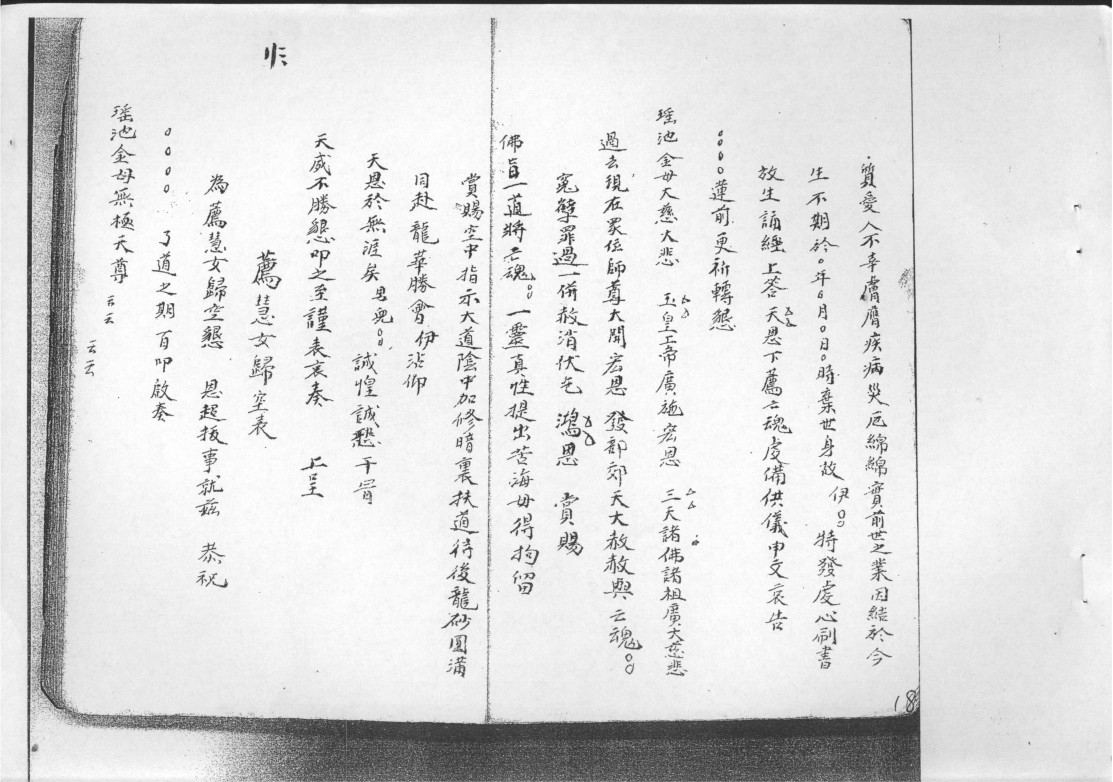 質受人不幸膚膺疾病災厄綿綿實前世之業因結於今
生不期於○年6月○日○時棄世身故 伊○○ 特發虔心刷書
放生誦經上答 天恩下薦亡魂虔備供儀申文哀告
○○○○蓮前更祈轉懇
瑶池金母大慈大悲 玉皇上帝廣施宏恩 三天諸佛諸祖廣大慈悲
過去現在眾位師尊大開宏恩 發部郊天大赦赦與亡魂○○
冤孽罪過一併赦消伏乞 鴻恩 賞賜
佛旨一道將亡魂○○一靈真性提出苦海毋得拘留
賞賜空中指示大道陰中加修暗裏扶道待後龍砂圓滿
同赴龍華勝會 伊沾仰
天恩於無涯矣 男兒○○誠惶誠恐干冐
天威不勝懇叩之至謹表哀奏 上呈
薦慧女歸空表
為薦慧女歸空懇 恩超拔事就茲 恭祝
○○○○ 了道之期百叩啟奏
瑶池金母無極天尊 云云 云云
18